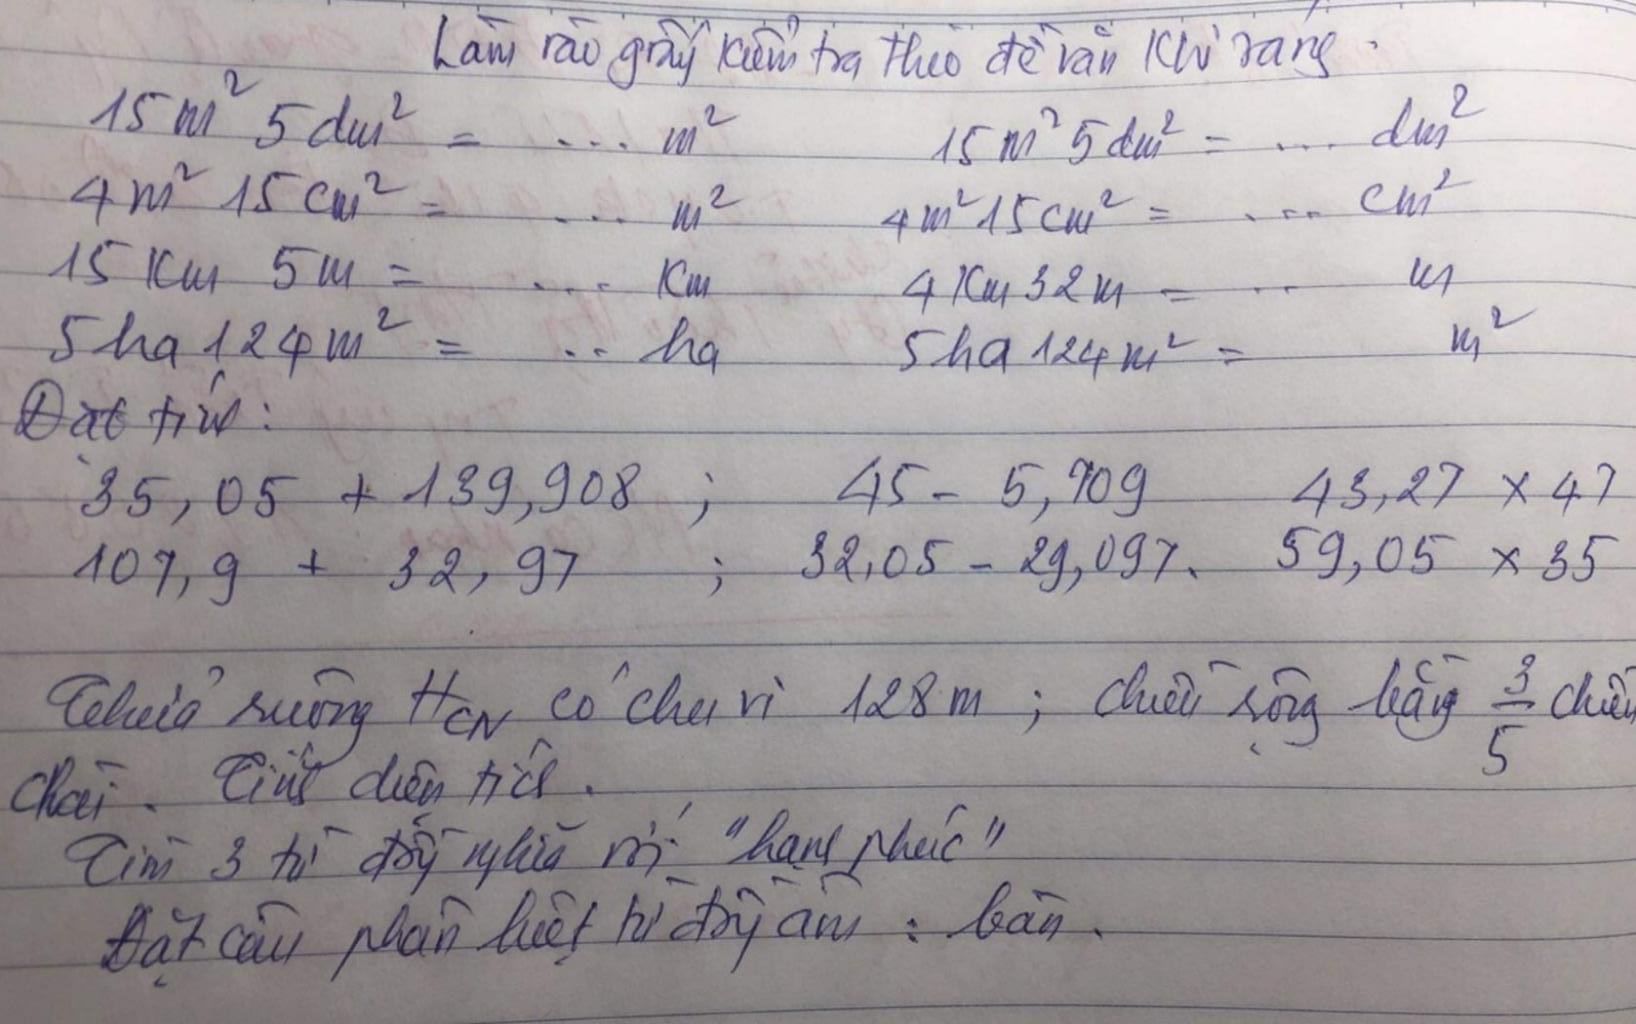 Làm vào giấy kiểm tra theo đề văn Khi sáng.
15 m² 5 dm² = ... m² 15 m² 5 dm² = ... dm²
4 m² 15 cm² = ... m² 4 m² 15 cm² = ... cm²
15 Km 5m = ... Km 4 Km 32m = .. m
5 ha 124 m² = .. ha 5 ha 124 m² = m²
Đặt tính:
35,05 + 139,908 ; 45 - 5,709 43,27 x 47
107,9 + 32,97 ; 32,05 - 29,097. 59,05 x 35
Thửa ruộng HCN có chu vi 128m ; chiều rộng bằng 3/5 chiều
dài. Tính diện tích.
Tìm 3 từ đồng nghĩa với "hạnh phúc"
Đặt câu phân biệt từ đồng âm : bàn.